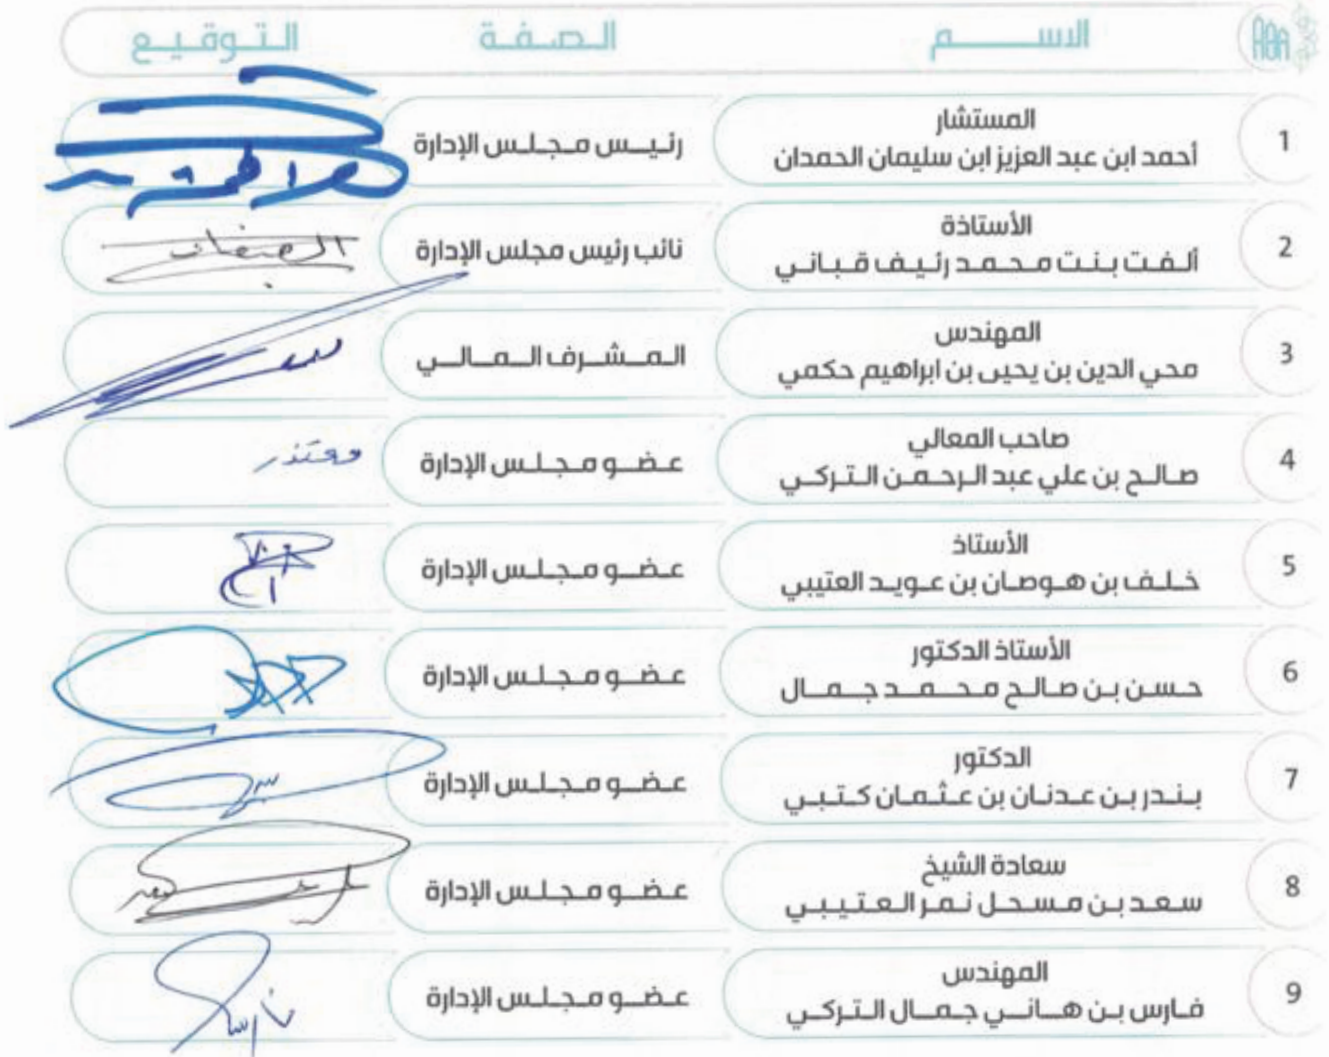 الاسم الصفة التوقيع
1 المستشار
أحمد ابن عبد العزيز ابن سليمان الحمدان رئيس مجلس الإدارة
2 الأستاذة
ألفت بنت محمد رئيف قباني نائب رئيس مجلس الإدارة
3 المهندس
محي الدين بن يحيى بن ابراهيم حكمي المشرف المالي
4 صاحب المعالي
صالح بن علي عبد الرحمن التركي عضو مجلس الإدارة معتذر
5 الأستاذ
خلف بن هوصان بن عويد العتيبي عضو مجلس الإدارة
6 الأستاذ الدكتور
حسن بن صالح محمد جمال عضو مجلس الإدارة
7 الدكتور
بندر بن عدنان بن عثمان كتبي عضو مجلس الإدارة
8 سعادة الشيخ
سعد بن مسحل نمر العتيبي عضو مجلس الإدارة
9 المهندس
فارس بن هاني جمال التركي عضو مجلس الإدارة